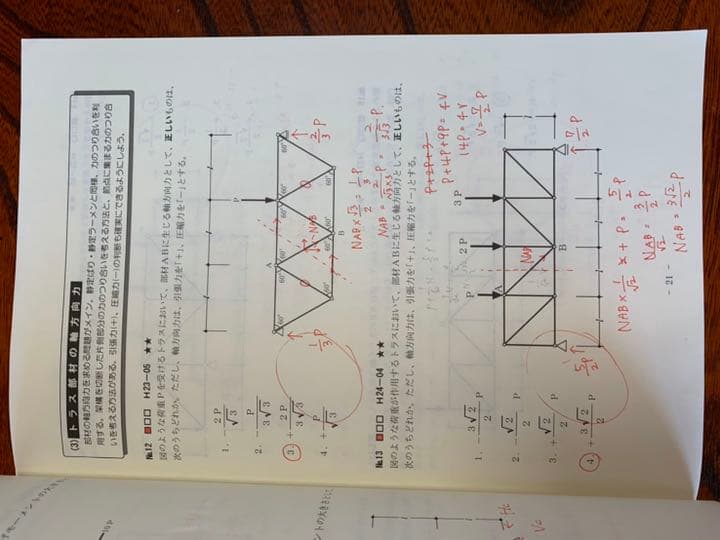 (3) トラス部材の軸方向力
部材の軸方向力を求める問題がメイン。静定ばり・静定ラーメンと同様、力のつり合いを利
用する。架構を切断した片側部分の力のつり合いを考える方法と、節点に集まる力のつり合
いを考える方法がある。引張力(+)、圧縮力(−)の判断も確実にできるようにしよう。
№12 □□ H23-05 ★★
図のような荷重Pを受けるトラスにおいて、部材ABに生じる軸方向力として、正しいものは、
次のうちどれか。ただし、軸方向力は、引張力を「+」、圧縮力を「−」とする。
1. − 2P/√3
2. − P/3√3
3. + 2P/3√3
4. + P/√3
P
A
B
60° 60° 60° 60° 60°
60° 60° 60° 60°
NAB
1/3 P
2/3 P
NAB × √3/2 = 1/3 P
№13 □□ H24-04 ★★
図のような荷重が作用するトラスにおいて、部材ABに生じる軸方向力として、正しいものは、
次のうちどれか。ただし、軸方向力は、引張力を「+」、圧縮力を「−」とする。
1. − 3√2/2 P
2. − √2/2 P
3. + √2/2 P
4. + 3√2/2 P
P
2P
3P
A
B
NAB
5/2 P
7/2 P
P+4P+9P = 4V
14P = 4V
V = 7/2 P
NAB × 1/√2 + P = 5/2 P
NAB/√2 = 3/2 P
NAB = 3√2/2 P
- 21 -